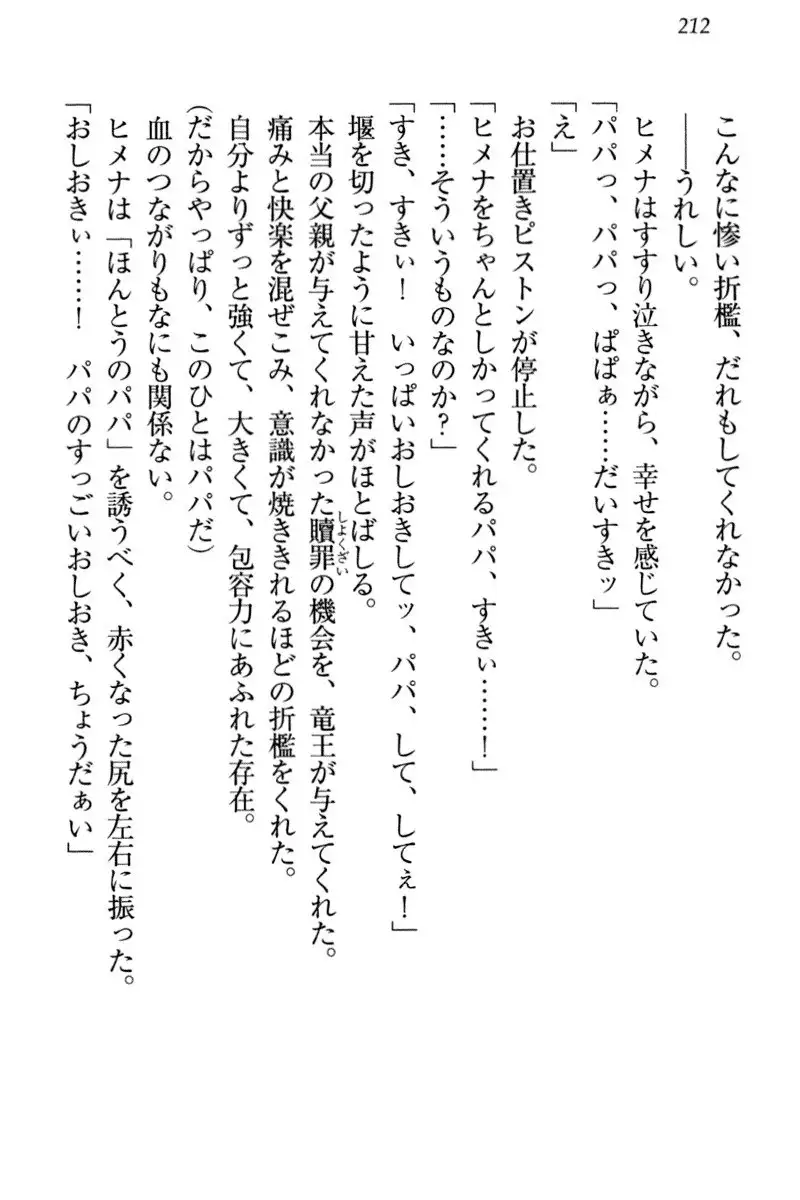 212
こんなに惨い折檻、だれもしてくれなかった。
――うれしい。
ヒメナはすすり泣きながら、幸せを感じていた。
「パパっ、パパっ、ぱぱぁ……だいすきッ」
「え」
お仕置きピストンが停止した。
「ヒメナをちゃんとしかってくれるパパ、すきぃ……！」
「……そういうものなのか？」
「すき、すきぃ！　いっぱいおしおきしてッ、パパ、して、してぇ！」
堰を切ったように甘えた声がほとばしる。
本当の父親が与えてくれなかった贖罪しょくざいの機会を、竜王が与えてくれた。
痛みと快楽を混ぜこみ、意識が焼ききれるほどの折檻をくれた。
自分よりずっと強くて、大きくて、包容力にあふれた存在。
(だからやっぱり、このひとはパパだ)
血のつながりもなにも関係ない。
ヒメナは「ほんとうのパパ」を誘うべく、赤くなった尻を左右に振った。
「おしおきぃ……！　パパのすっごいおしおき、ちょうだぁい」